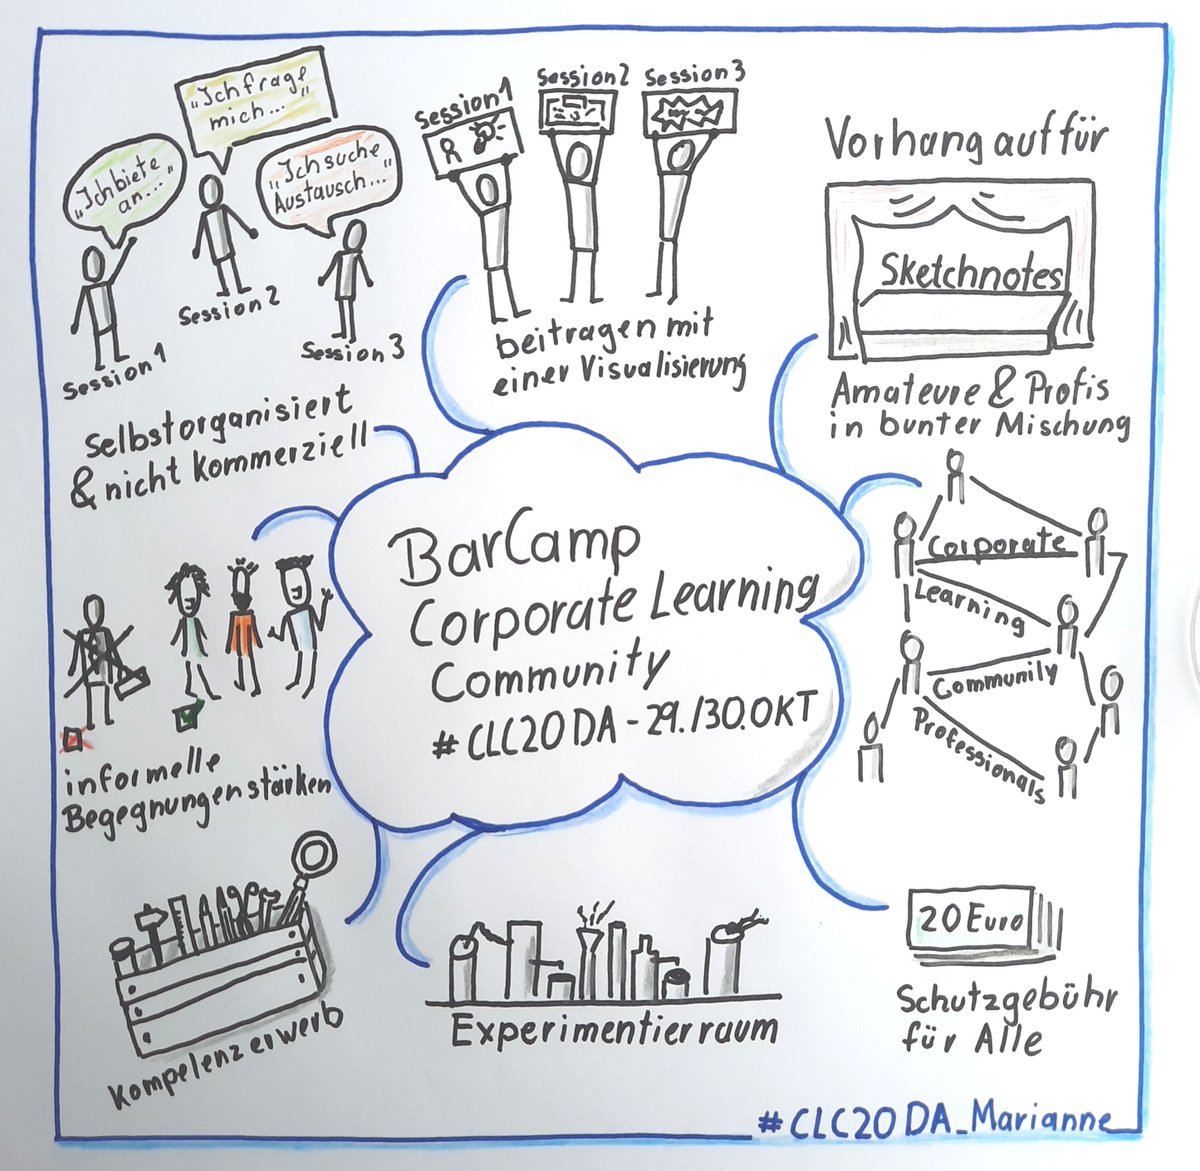 "Ich biete
an..."
"Ich frage
mich..."
"Ich suche
Austausch..."
Session 1
Session 2
Session 3
Selbstorganisiert
& nicht kommerziell
Session 1
Session 2
Session 3
beitragen mit
einer Visualisierung
Vorhang auf für
Sketchnotes
Amateure & Profis
in bunter Mischung
BarCamp
Corporate Learning
Community
#CLC20DA - 29./30.OKT
Corporate
Learning
Community
Professionals
informelle
Begegnungen stärken
Kompetenzerwerb
Experimentierraum
20 Euro
Schutzgebühr
für Alle
#CLC20DA_Marianne